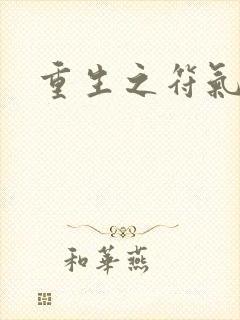 重生之符氣
和華燕